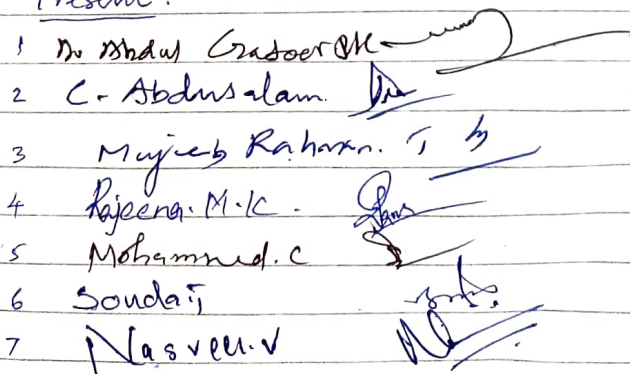 Present:
1 Dr Abdul Gafoor PK
2 C. Abdusalam
3 Mujeeb Rahman. T
4 Rajeena. M.K.
5 Mohammed. C
6 Souda T
7 Nasreen. V